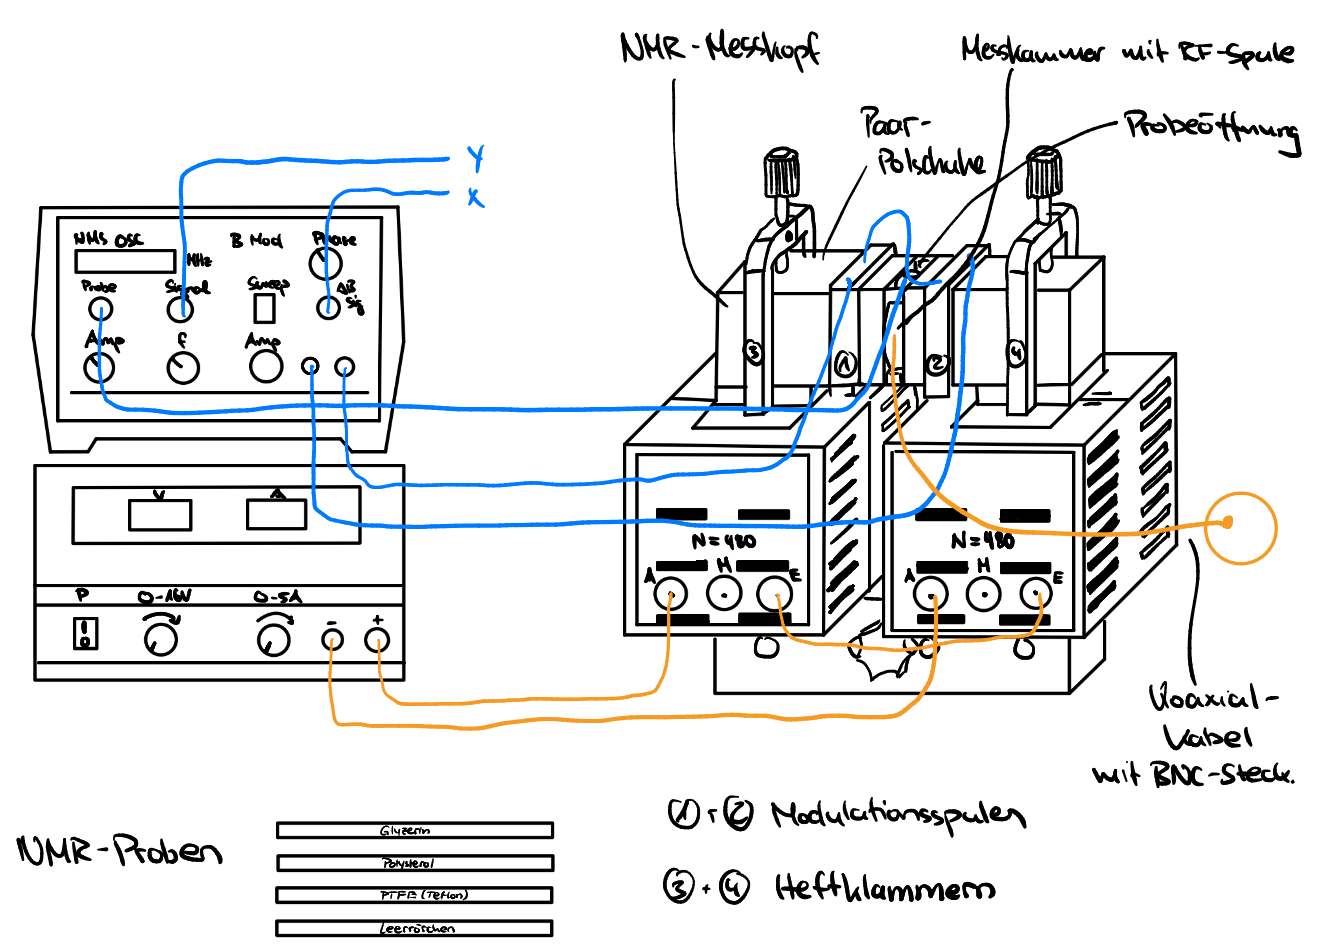 NMR-Messkopf
Messkammer mit RF-Spule
Paar-
Polschuhe
Probeöffnung
Y
X
NMS OSC
MHz
B Mod
Phase
Probe
Signal
Sweep
ΔB
Sig
Amp
f
Amp
3
1
2
4
V
A
P
0-16V
0-5A
I
0
-
+
N=480
A
M
E
N=480
A
M
E
Koaxial-
kabel
mit BNC-Steck.
NMR-Proben
Glyzerin
Polysterol
PTFE (Teflon)
Leerröhrchen
1 + 2 Modulationsspulen
3 + 4 Heftklammern